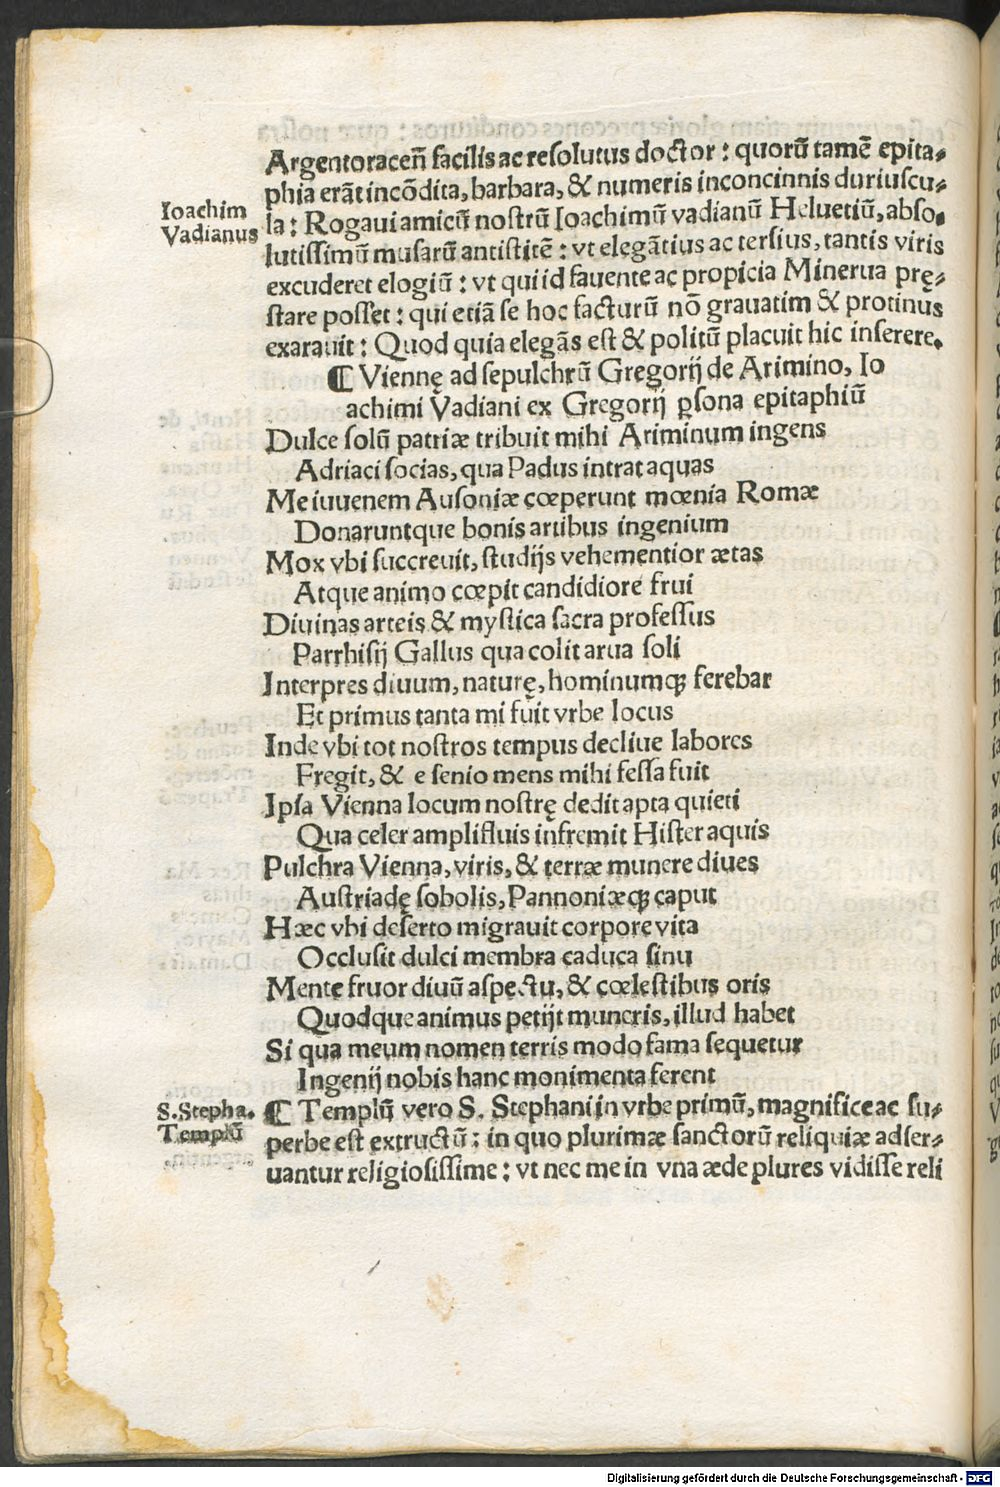 Argentoraceñ facilis ac resolutus doctor : quorū tamē epita-
phia erāt incōdita, barbara, & numeris inconcinnis duriuscu-
Ioachim
Vadianus
la : Rogaui amicū nostrū Ioachimū vadianū Heluetiū, abso-
lutissimū musarū antistitē : vt elegātius ac tersius, tantis viris
excuderet elogiū : vt qui id fauente ac propicia Minerua prę-
stare posset : qui etiā se hoc facturū nō grauatim & protinus
exarauit : Quod quia elegās est & politū placuit hic inserere.
¶ Viennę ad sepulchrū Gregorij de Arimino, Io
achimi Vadiani ex Gregorij ꝑsona epitaphiū
Dulce solū patriæ tribuit mihi Ariminum ingens
Adriaci socias, qua Padus intrat aquas
Me iuuenem Ausoniæ cœperunt mœnia Romæ
Donaruntque bonis artibus ingenium
Mox vbi succreuit, studijs vehementior ætas
Atque animo cœpit candidiore frui
Diuinas arteis & mystica sacra professus
Parrhisij Gallus qua colit arua soli
Interpres diuum, naturę, hominumqꝫ ferebar
Et primus tanta mi fuit vrbe locus
Inde vbi tot nostros tempus decliue labores
Fregit, & e senio mens mihi fessa fuit
Ipsa Vienna locum nostrę dedit apta quieti
Qua celer amplifluis infremit Hister aquis
Pulchra Vienna, viris, & terræ munere diues
Austriadę sobolis, Pannoniæqꝫ caput
Hæc vbi deserto migrauit corpore vita
Occlusit dulci membra caduca sinu
Mente fruor diuū aspectu, & cœlestibus oris
Quodque animus petijt muneris, illud habet
Si qua meum nomen terris modo fama sequetur
Ingenij nobis hanc monimenta ferent
S. Stepha.
Templū
¶ Templū vero S. Stephani in vrbe primū, magnifice ac su-
perbe est extructū : in quo plurimæ sanctorū reliquiæ adser-
uantur religiosissime : vt nec me in vna æde plures vidisse reli
Digitalisierung gefördert durch die Deutsche Forschungsgemeinschaft - DFG